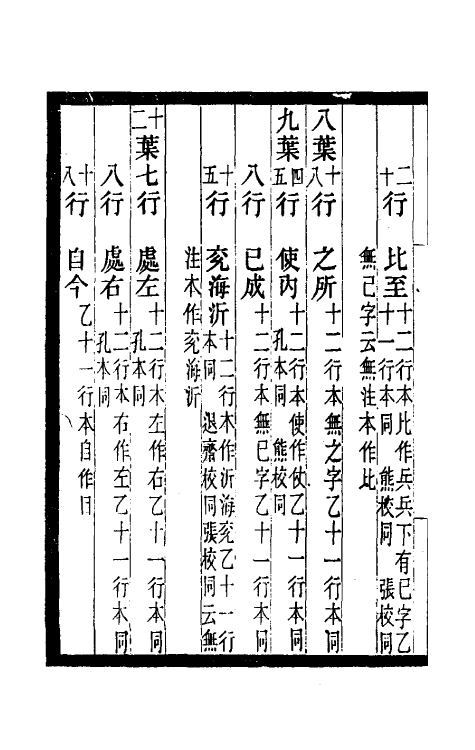 二十行　比至　十二行本比作兵兵下有已字乙十一行本同　熊校同　張校同
無已字云無注本作比
八葉十八行　之所　十二行本無之字乙十一行本同
九葉四五行　使内　十二行本使作仗乙十一行本同　孔本同　熊校同
八行　已成　十二行本無已字乙十一行本同
十五行　兗海沂　十二行本作沂海兗乙十一行本同　退齋校同張校同云無
注本作兗海沂
十二葉七行　處左　十二行本左作右乙十一行本同　孔本同
八行　處右　十二行本右作左乙十一行本同　孔本同
十八行　自今　乙十一行本自作日